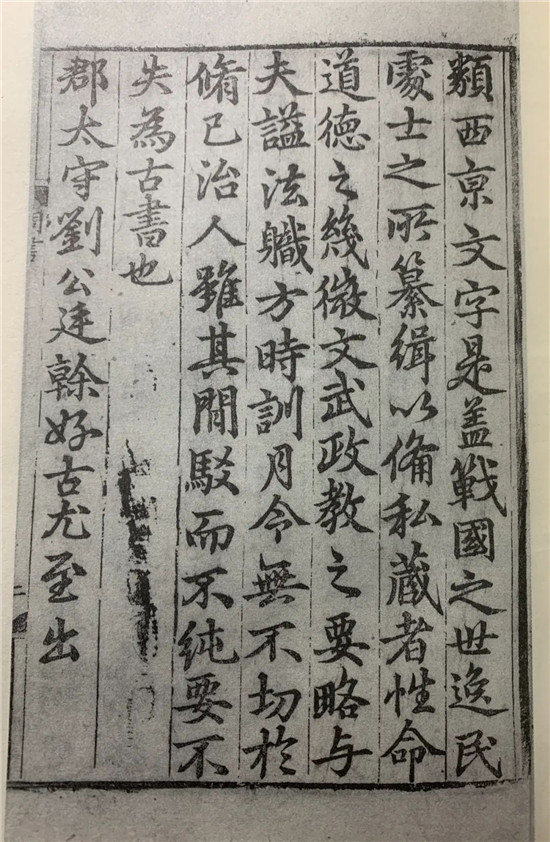 類西京文字是盖戰國之世逸民
處士之所纂缉以俻私蔵者性命
道德之幾微文武政教之要略与
夫謚法職方時訓月令無不切於
脩已治人雖其間駁而不純要不
失為古書也
郡太守劉公廷榦好古尤至出